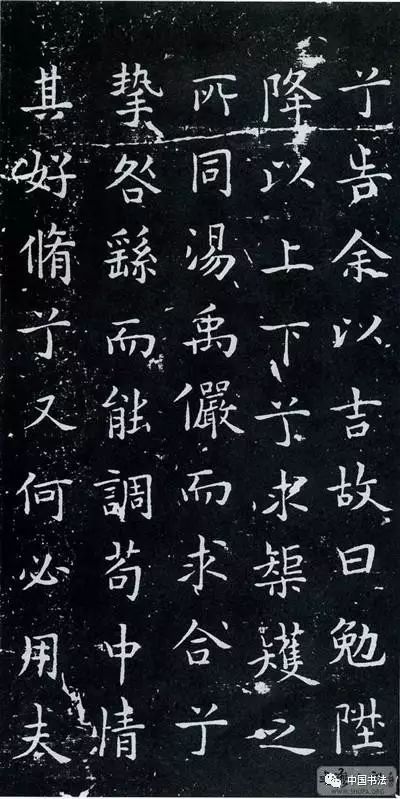 兮告余以吉故曰勉陞
降以上下兮求榘矱之
所同湯禹儼而求合兮
摯咎繇而能調苟中情
其好脩兮又何必用夫
中国书法
WWW.SHUFA.ORG